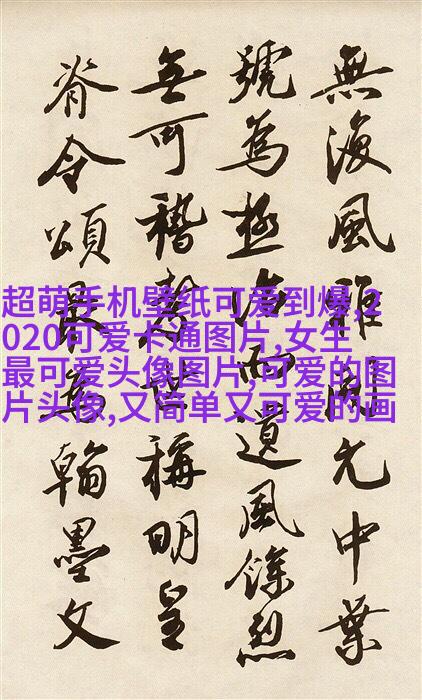 超萌手机壁纸可爱到爆,2
020可爱卡通图片,女生
最可爱头像图片,可爱的图
片头像,又简单又可爱的画
無復風雅開元中葉
號為極治而遺風餘烈
無可稽世稱明皇
脊令頌最為翰墨文